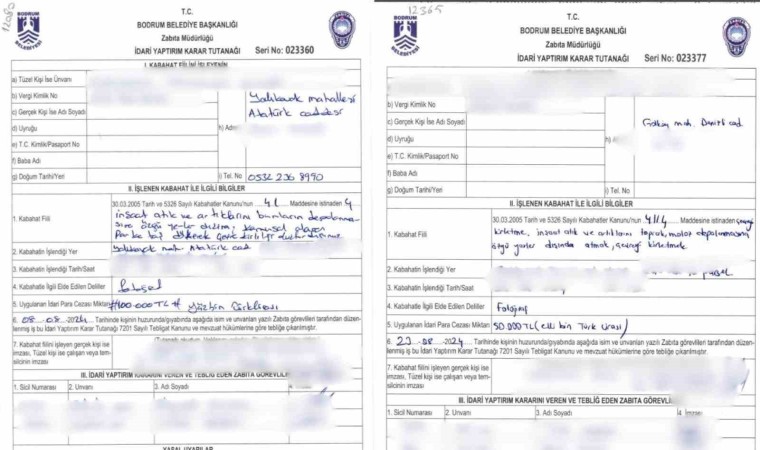 12080
T.C.
BODRUM BELEDİYE BAŞKANLIĞI
Zabıta Müdürlüğü
İDARİ YAPTIRIM KARAR TUTANAĞI Seri No: 023360
BODRUM
BELEDİYESİ
I. KABAHAT FİİLİNİ İŞLEYENİN
a) Tüzel Kişi İse Ünvanı
b) Vergi Kimlik No
c) Gerçek Kişi İse Adı Soyadı
d) Uyruğu
e) T.C. Kimlik/Pasaport No
f) Baba Adı
g) Doğum Tarihi/Yeri
Yalıkavak mahallesi
Atatürk caddesi
h) Adres
i) Tel. No 0532 236 8990
II. İŞLENEN KABAHAT İLE İLGİLİ BİLGİLER
1. Kabahat Fiili
30.03.2005 Tarih ve 5326 Sayılı Kabahatler Kanunu'nun 41 Maddesine istinaden 4
inşaat atık ve artıklarını bunların depolanma-
sına özgü yerler dışına, kamusal
2. Kabahatin İşlendiği Yer
Yalıkavak mah. Atatürk cad
3. Kabahatin İşlendiği Tarih/Saat
4. Kabahatle İlgili Elde Edilen Deliller
5. Uygulanan İdari Para Cezası Miktarı #100.000 TL# Yüzbin Türklirası
6. 08.08.2024 Tarihinde kişinin huzurunda/gıyabında aşağıda isim ve unvanları yazılı Zabıta görevlileri tarafından düzen-
lenmiş iş bu İdari Yaptırım Karar Tutanağı 7201 Sayılı Tebligat Kanunu ve mevzuat hükümlerine göre tebliğe çıkarılmıştır.
7. Kabahat fiilini işleyen gerçek kişi ise
imzası, Tüzel kişi ise çalışan veya tem-
silcinin imzası
III. İDARİ YAPTIRIM KARARINI VEREN VE TEBLİĞ EDEN ZABITA GÖREVLİL
1. Sicil Numarası 2. Unvanı 3. Adı Soyadı
YASAL UYARILAR
12365
T.C.
BODRUM BELEDİYE BAŞKANLIĞI
Zabıta Müdürlüğü
İDARİ YAPTIRIM KARAR TUTANAĞI Seri No: 023377
BODRUM
BELEDİYESİ
b) Vergi Kimlik No
c) Gerçek Kişi İse Adı Soyadı
d) Uyruğu
e) T.C. Kimlik/Pasaport No
f) Baba Adı
g) Doğum Tarihi/Yeri
i) Tel. No
II. İŞLENEN KABAHAT İLE İLGİLİ BİLGİLER
1. Kabahat Fiili
30.03.2005 Tarih ve 5326 Sayılı Kabahatler Kanunu'nun 41/4 Maddesine istinaden çevreyi
kirletme, inşaat atık ve artıklarını toprak, moloz depolanmasına
özgü yerler dışında atmak, çevreyi kirletmek
2. Kabahatin İşlendiği Yer
3. Kabahatin İşlendiği Tarih/Saat
4. Kabahatle İlgili Elde Edilen Deliller Fotoğraf
5. Uygulanan İdari Para Cezası Miktarı 50.000 TL (elli bin Türk Lirası)
6. 23.08.2024 Tarihinde kişinin huzurunda/gıyabında aşağıda isim ve unvanları yazılı Zabıta görevlileri tarafından düzen-
lenmiş iş bu İdari Yaptırım Karar Tutanağı 7201 Sayılı Tebligat Kanunu ve mevzuat hükümlerine göre tebliğe çıkarılmıştır.
7. Kabahat fiilini işleyen gerçek kişi ise
imzası, Tüzel kişi ise çalışan veya tem-
silcinin imzası
III. İDARİ YAPTIRIM KARARINI VEREN VE TEBLİĞ EDEN ZABITA GÖREVLİL
1. Sicil Numarası 2. Unvanı 3. Adı Soyadı 4. İmzası